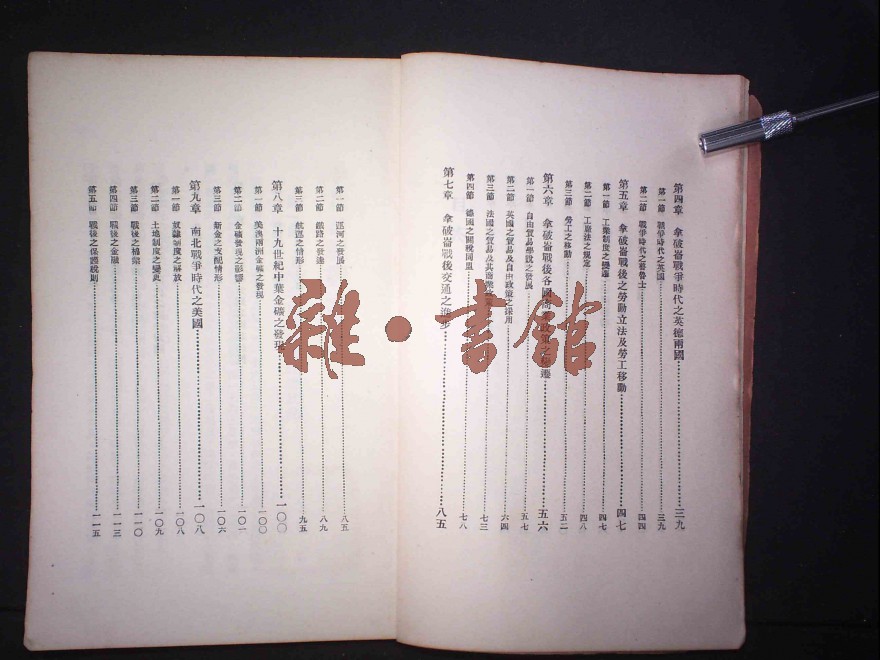 第四章 拿破崙戰爭時代之英德兩國 三九
第一節 戰爭時代之英國 三九
第二節 戰爭時代之普魯士 四四
第五章 拿破崙戰後之勞動立法及勞工移動 四七
第一節 工業制度之變遷 四七
第二節 工業法之規定 四八
第三節 勞工之移動 五二
第六章 拿破崙戰後各國商業政策之變遷 五六
第一節 自由貿易學說之發展 五七
第二節 英國之貿易及自由政策之採用 六四
第三節 法國之貿易及其商業 七三
第四節 德國之關稅同盟 七八
第七章 拿破崙戰後交通之進步 八五
第一節 運河之發展 八五
第二節 鐵路之發達 八九
第三節 航運之情形 九五
第八章 十九世紀中葉金礦之發現 一〇〇
第一節 美澳兩洲金礦之發現 一〇〇
第二節 金礦發現之影響 一〇二
第三節 新金之支配情形 一〇六
第九章 南北戰爭時代之美國 一〇八
第一節 奴隸制度之解放 一〇八
第二節 土地制度之變更 一〇九
第三節 戰後之棉業 一一〇
第四節 戰後之金融 一一三
第五節 戰後之保護稅則 一一五
雜·書館